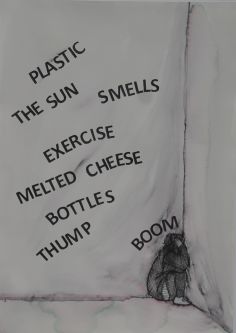 PLASTIC
THE SUN SMELLS
EXERCISE
MELTED CHEESE
BOTTLES
THUMP BOOM